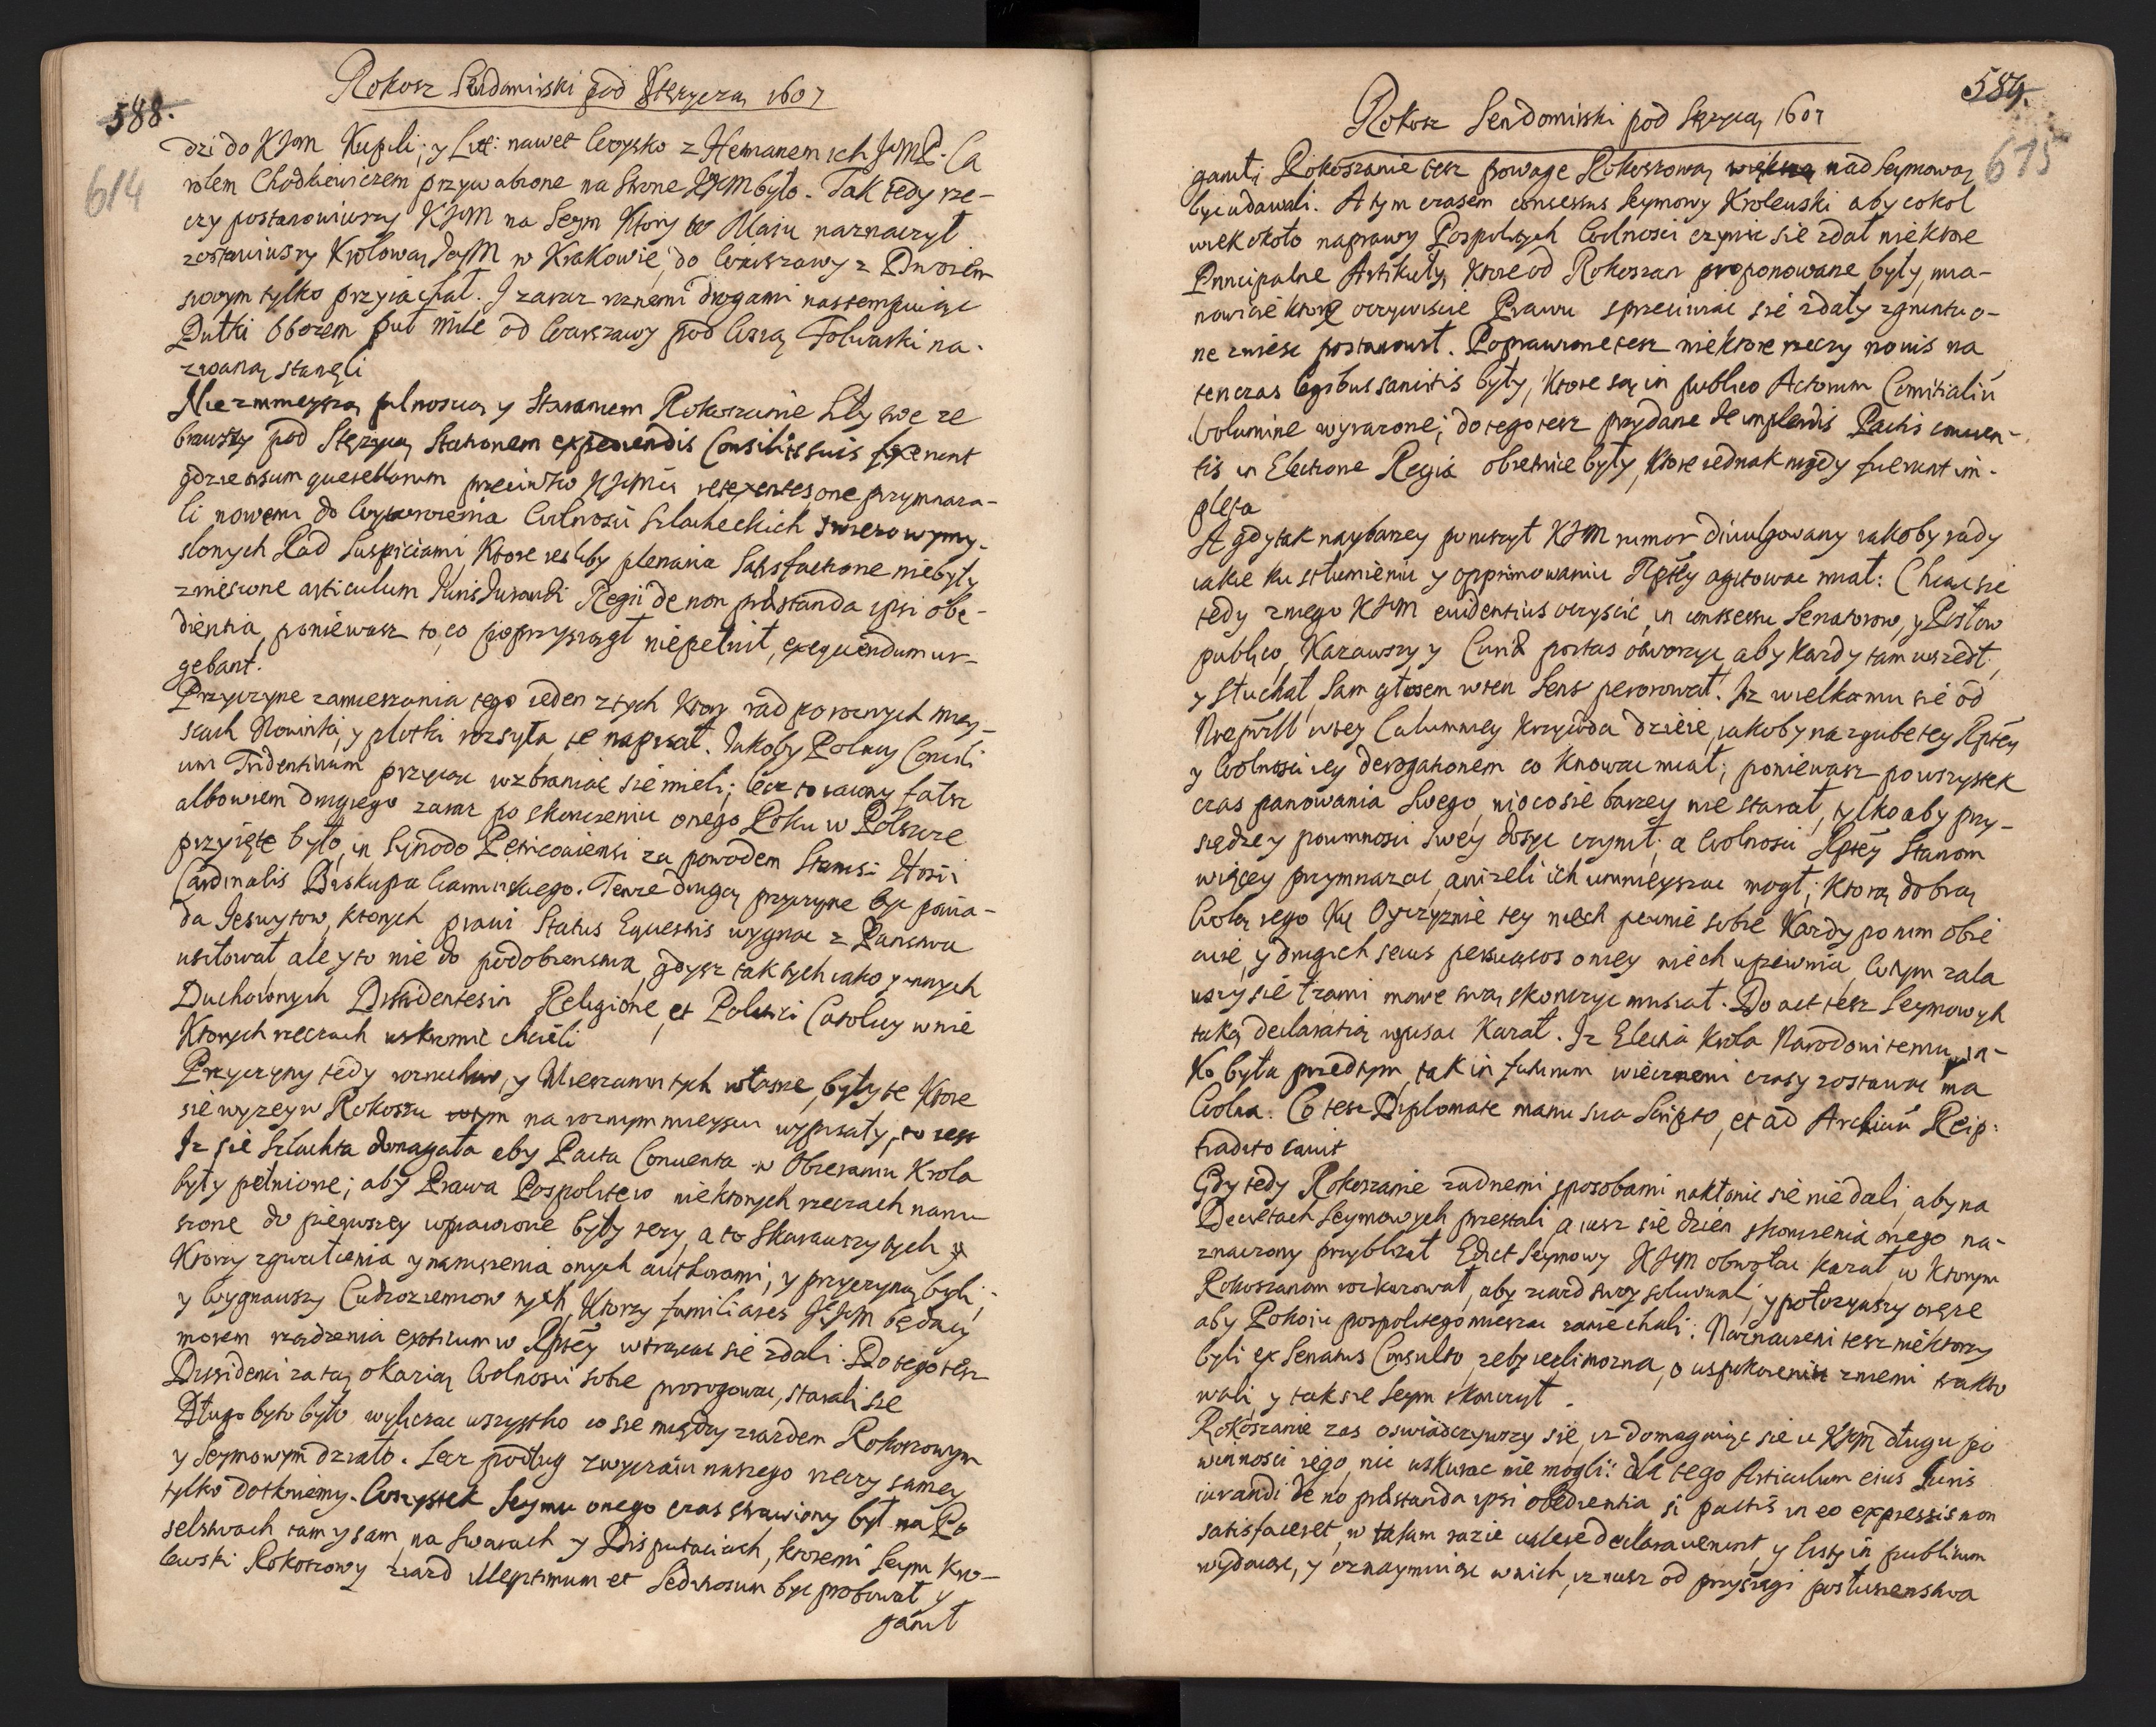 588.
614
Rokosz Sendomirski pod Stęzycza 1607
dzi do KJM Kupili; y Litt: nawet Woysko z Hetmanem ich JeMP. Ca
rolem Chodkiewiczem przywabione na strone KJM było. Tak tedy rze-
czy postanowiwszy KJM na Seym Ktory w Maiu naznaczył
zostawiwszy Krolową JejM w Krakowie, do Warszawy z Dworem
swoym tylko przyiachał. I zaraz roznemi drogami nastempuiąc
Pułki Obozem puł mile od Warszawy pod Wsią Folwarki na-
zwaną stanęli
Nie zmnieyszą pilnoscią y staraniem Rokoszanie siły swe ze
brawszy pod Stęzycą Stationem expediendis Consiliis suis fixerunt
gdzie visum querellarum przeciwko KJMci retexentes one przymnaza-
li nowemi do Wywrocenia Wolnosci Szlacheckich swiezo wymy-
slonych Rad Suspiciami, Ktore iesliby plenaria Satisfactione niebyły
zniesione articulum Iuris Iurandi Regii de non præstanda ipsi obe-
dientia, poniewasz to, co poprzysiągł niepełnił, exequendum ur-
gebant.
Przyczyne zamieszania tego ieden z tych Ktory rad po roznych miey-
scach Nowinki, y plotki rozsyła te napisał. Jakoby Polacy Concili
um Tridentinum przyiąc wzbraniac sie mieli; lecz to iawny fałsz
albowiem drugiego zaraz po skonczeniu onego Roku w Polszcze
przyięte było, in Synodo Petricoviensi za powodem Stanisi Hosii
Cardinalis Biskupa Warminskiego. Tenze drugą przyczyne byc powia-
da Iesuytow, ktorych prawi Status Equestris wygnac z Panstwa
usiłował, ale y to nie do podobienstwa, gdysz tak tych iako y innych
Duchownych Dissidentes in Religione, et Politici Catolicy w nie
Ktorych rzeczach uskromic chcieli
Przyczyny tedy rozruchow, y Mieszanin tych własne, były te Ktore
sie wyzey w Rokoszu na roznym mieyscu wypisały, to iest
Iz sie Szlachta domagała aby Pacta Conventa w Obieraniu Krola
były pełnione; aby Prawa Pospolite w niektorych rzeczach naru
szone do pierwszey wprawione były rezy, a to skarawszy tych
Ktorzy zgwałcenia y naruszenia onych authorami, y przyczyną byli,
y Wygnawszy Cudzoziemcow tych, Ktorzy familiares JeJM będący
morem rządzenia exoticum w Rptey wtrącac sie zdali. Do tego tesz
Dissidenci za tą okazią Wolnosci sobie prorogowac, starali sie
Długo by to było wyliczac wszystko co sie między ziazdem Rokoszowym
y Seymowym działo. Lecz podług zwyczaiu naszego rzeczy samey
tylko dotkniemy. Wszystek Seymu onego czas strawiony był na Po
selstwach tam y sam, na Swarach y Disputaciach, ktoremi Seym Kro-
lewski Rokoszowy ziazd Illegitimum et Seditiosum byc probował y
ganił
589.
675
Rokosz Sendomirski pod Stęzycą 1607
ganili Rokoszanie tesz powage Rokoszową większą nad Seymową
byc udawali. A tym czasem consessus Seymowy Krolewski aby cokol
wiek około naprawy Pospolitych Wolnosci czynic sie zdał niektore
Principalne Artikuły, Ktore od Rokoszan proponowane były, mia-
nowicie ktore oczywiscie Prawu sprzeciwiac sie zdały zgruntu o-
ne zniesc postanowił. Poprawione tesz niektore rzeczy nowis na
ten czas legibus sancitis były, Ktore są in publico Actorum Comitialiu
Volumine wyrazone; do tego tesz przydane de implendis Pactis conven-
tis in Electione Regia obietnice były, Ktore iednak nigdy fuerunt im-
pleta
A gdy tak naybarzey poruszył KJM rumor divulgowany iakoby rady
iakie ku stłumieniu y opprimowaniu Rptey agitowac miał: Chcąc sie
tedy z niego KJM evidentius oczyscic, in consessu Senatorow, y Posłow
publico, Kazawszy y Cunctis portas otworzyc, aby kazdy tam wszedł;
y słuchał, sam głosem w ten sens perorował. Iz wielka mu sie od
Nieprzill w tey Calumniey krzywda dzieie, iakoby na zgube tey Rptey
y Wolnosci iey derogationem co Knowac miał; poniewasz po wszystek
czas panowania swego, nio co sie barzey nie starał, tylko aby przy-
siędze y powinnosci swey dosyc czynił; a Wolnosci Rptey Stanom
więcey przymnazac, anizeli ich umnieyszac mogł; Ktorą dobrą
Wolą iego Ku Oyczyznie tey niech pewnie sobie Kazdy po nim obie
cuie, y drugich secus persuasos o niey niech upewnia. W tym zala
wszy sie łzami mowe swą skonczyc musiał. Do act tesz Seymowych
taką declaratią wpisac Kazał. Iz Electia Krola Narodowi temu, ia-
ko była przedtym, tak in futurum wiecznemi czasy zostawac ma
Wolna. Co tesz Diplomate manu sua scripto, et ad Archivu Reip:
tradito cavit
Gdy tedy Rokoszanie zadnemi sposobami nakłonic sie nie dali, aby na
Decretach Seymowych przestali, a iusz sie dzien skonczenia onego na-
znaczony przyblizał Edict Seymowy KJM obwołac kazał, w Ktorym
Rokoszanom rozkazował, aby ziazd swoy solwowali, y połozywszy oręze
aby Pokoiu pospolitego mieszac zaniechali: Naznaczeni tesz niektorzy
byli ex Senatus Consulto, zeby iezli mozna, o uspokoieniu z niemi trakto
wali, y tak sie Seym skonczył.
Rokoszanie zas oswiadczywszy sie, iz domagaiąc sie u KJM długu po
winnosci iego, nic uskurac nie mogli: dla tego Articulum eius Iuris
iurandi de no præstanda ipsi obedientia si pactis in eo expressis non
satisfaceret, w takim razie valere declaraverunt, y listy in publicum
wydawac, y oznaymuiąc w nich, iz iusz od przysięgi posłuszenstwa